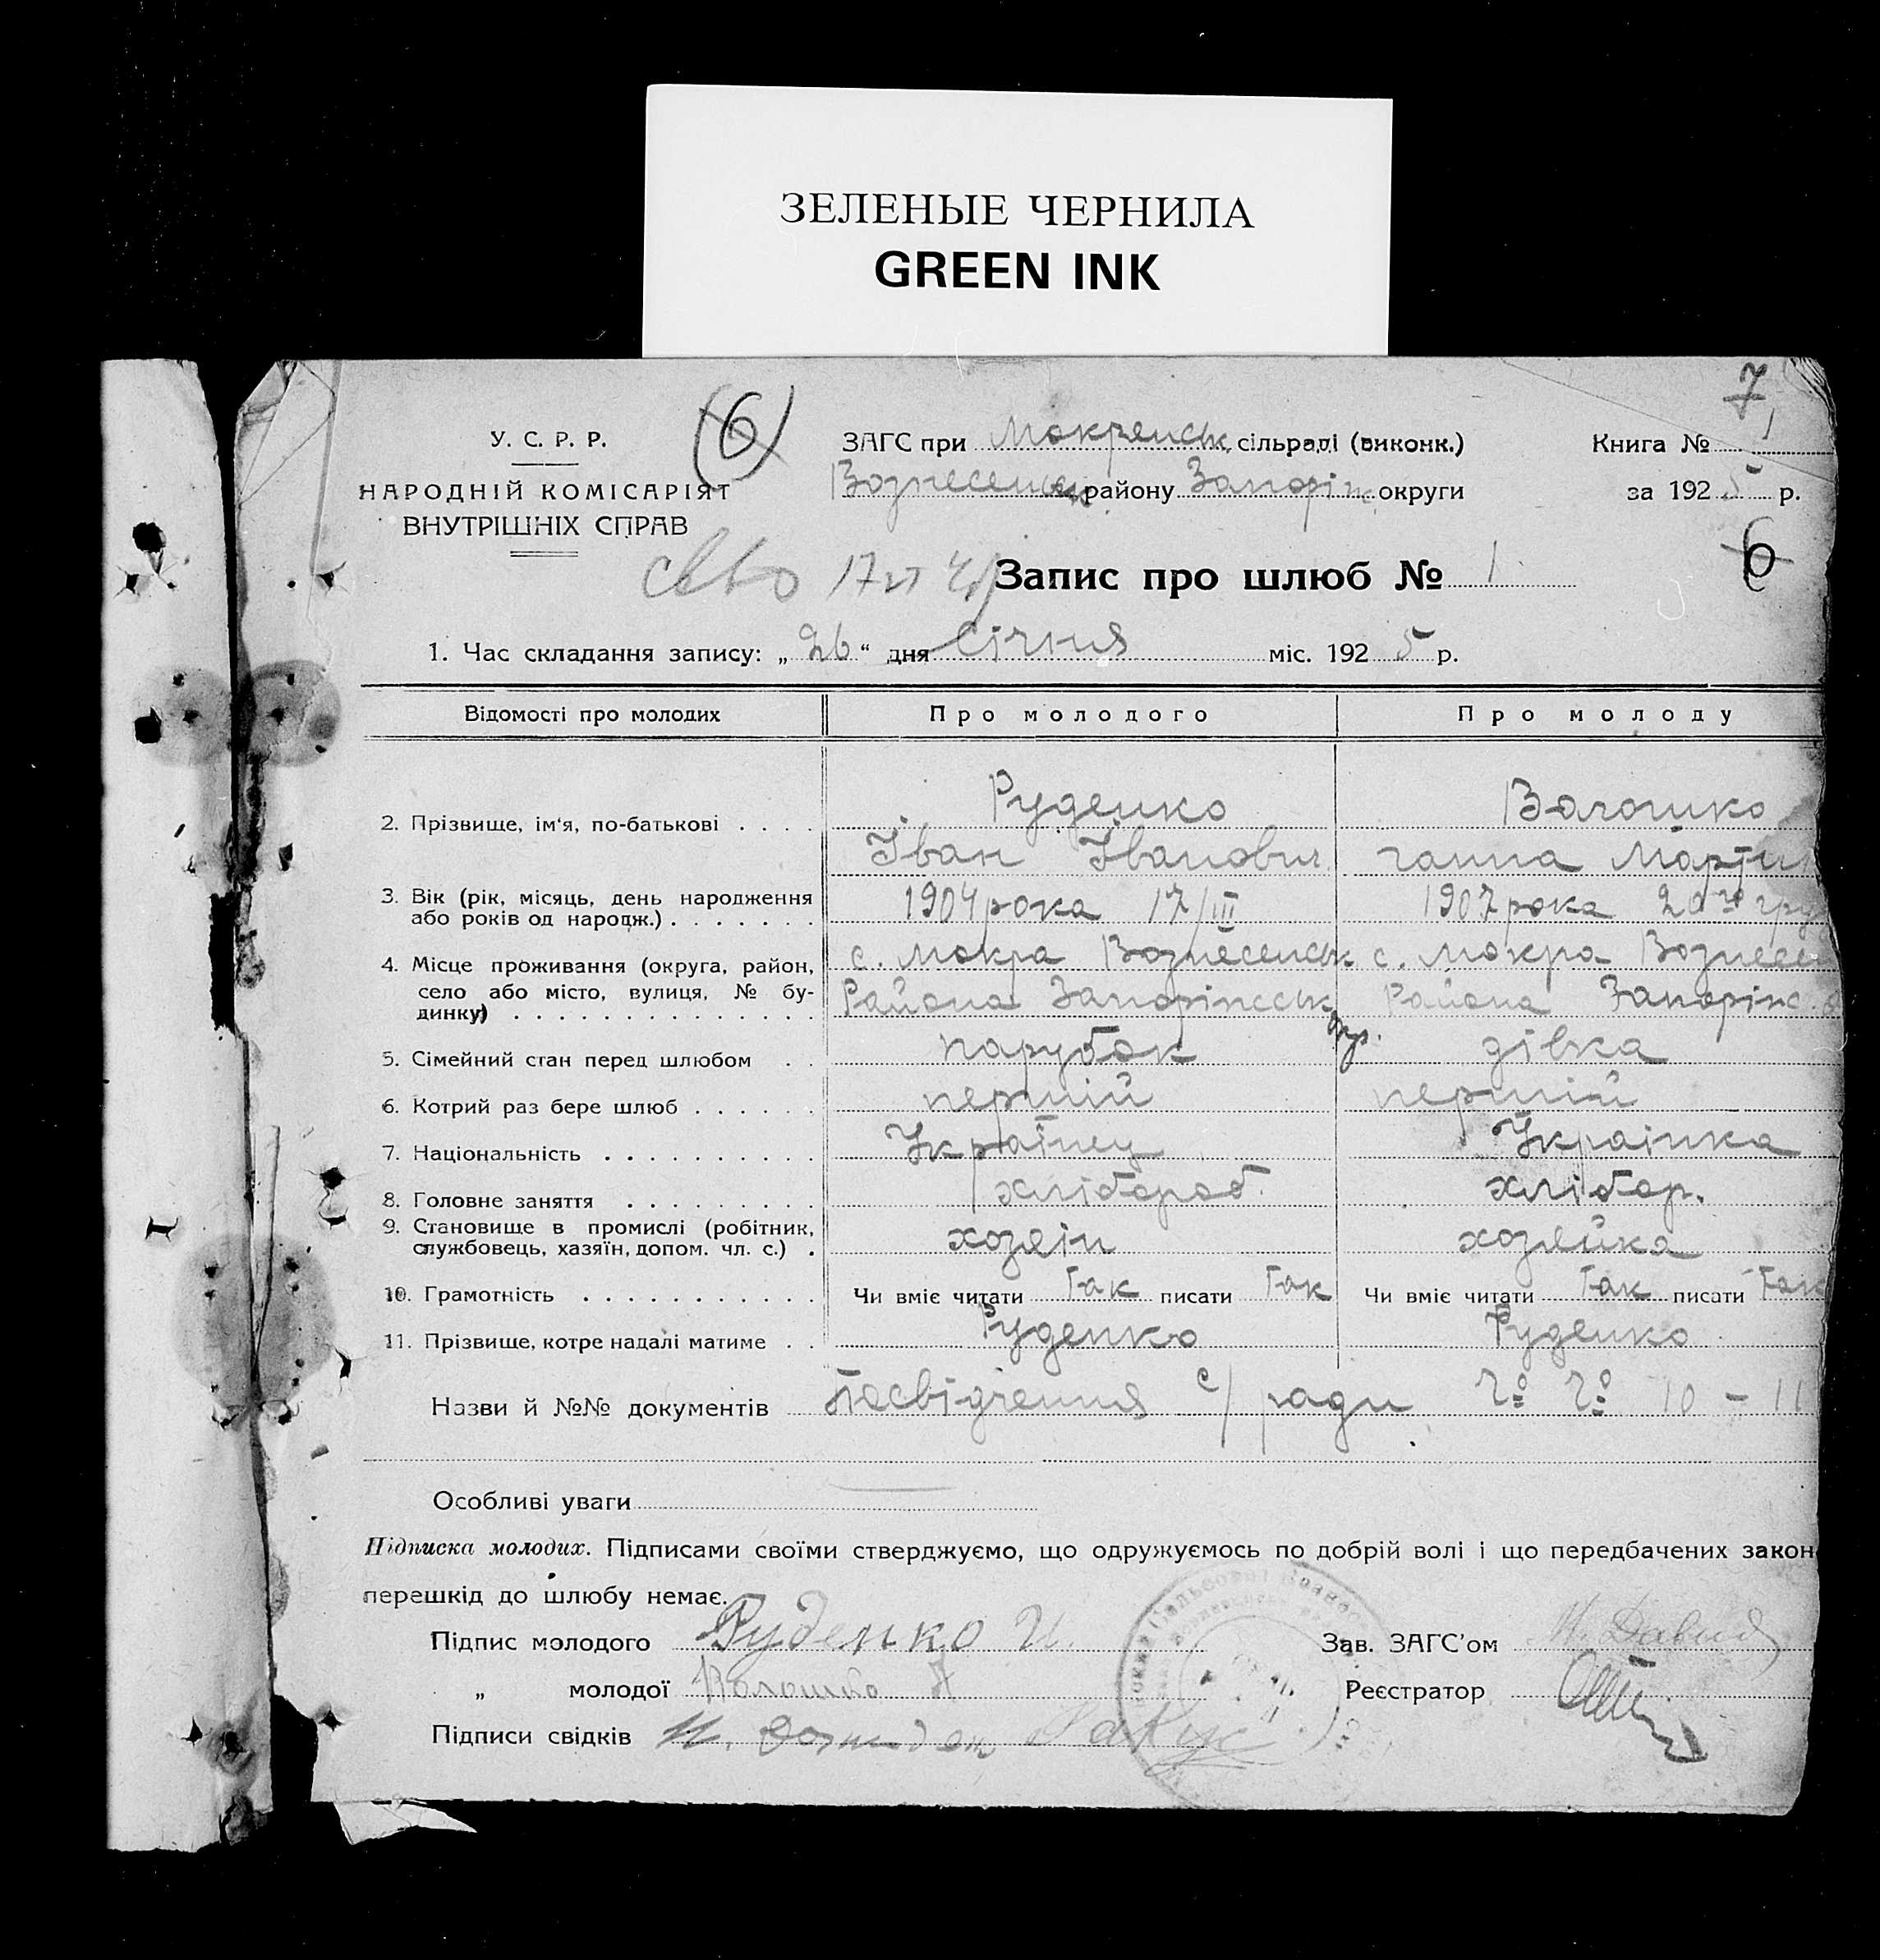 ЗЕЛЕНЫЕ ЧЕРНИЛА
GREEN INK
7
У. С. Р. Р.
(6)
ЗАГС при Мокрянськ. сільраді (виконк.)
Книга № 1
НАРОДНІЙ КОМІСАРІЯТ
Вознесенськ району Запоріж округи
за 1925 р.
ВНУТРІШНІХ СПРАВ
6
Запис про шлюб № 1.
1. Час складання запису: „26“ дня Січня міс. 1925 р.
Відомості про молодих Про молодого Про молоду
Руденко Волошко
2. Прізвище, ім'я, по-батькові . . . .
Іван Іванович ганна Мартин
3. Вік (рік, місяць, день народження 1904 рока 17/III 1907 рока 20го гру
або років од народж.) . . . . . . .
с. Мокра Вознесенськ с. Мокра Вознесен
4. Місце проживання (округа, район,
село або місто, вулиця, № бу- Района Запоріжськ окр. Района Запоріж. о
динку) . . . . . . . . . . . . . .
5. Сімейний стан перед шлюбом . . парубок дівка
6. Котрий раз бере шлюб . . . . . . перший перший
7. Національність . . . . . . . . . . Українец Українка
8. Головне заняття . . . . . . . . . хлібороб. хлібор.
9. Становище в промислі (робітник,
службовець, хазяїн, допом. чл. с.) . хозяїн хозяйка
10. Грамотність . . . . . . . . . . . Чи вміє читати Так писати Так Чи вміє читати Так писати Так
11. Прізвище, котре надалі матиме . . Руденко Руденко
Назви й №№ документів Посвідчення с/ради № № 10 – 11
Особливі уваги
Підписка молодих. Підписами своїми стверджуємо, що одружуємось по добрій волі і що передбачених закон
перешкід до шлюбу немає.
Підпис молодого Руденко И.
Зав. ЗАГС'ом
„ молодої Волошко А
Реєстратор
Підписи свідків